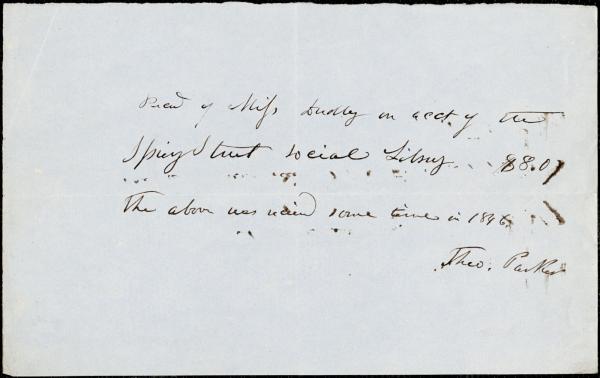 Recd of Miss Dudley on acct of the
Spring Street Social Library $8.0
The above was recieved some time in 1846
Theo. Parker